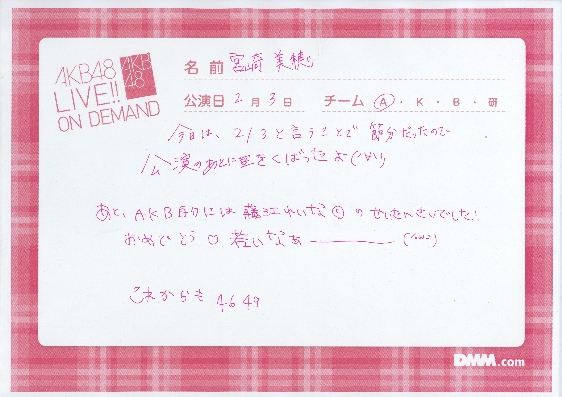 AKB48
LIVE!!
ON DEMAND
AKB
48
名前 宮崎 美穂
公演日 2月3日 チーム A・K・B・研
今日は、2/3と言うことで 節分だったので
公演のあとに豆をくばったよ
あと、AKB 的には 藤江れいな の せいたんさいでした!
おめでとう♡ 若いなぁ
これからも 4649
DMM.com